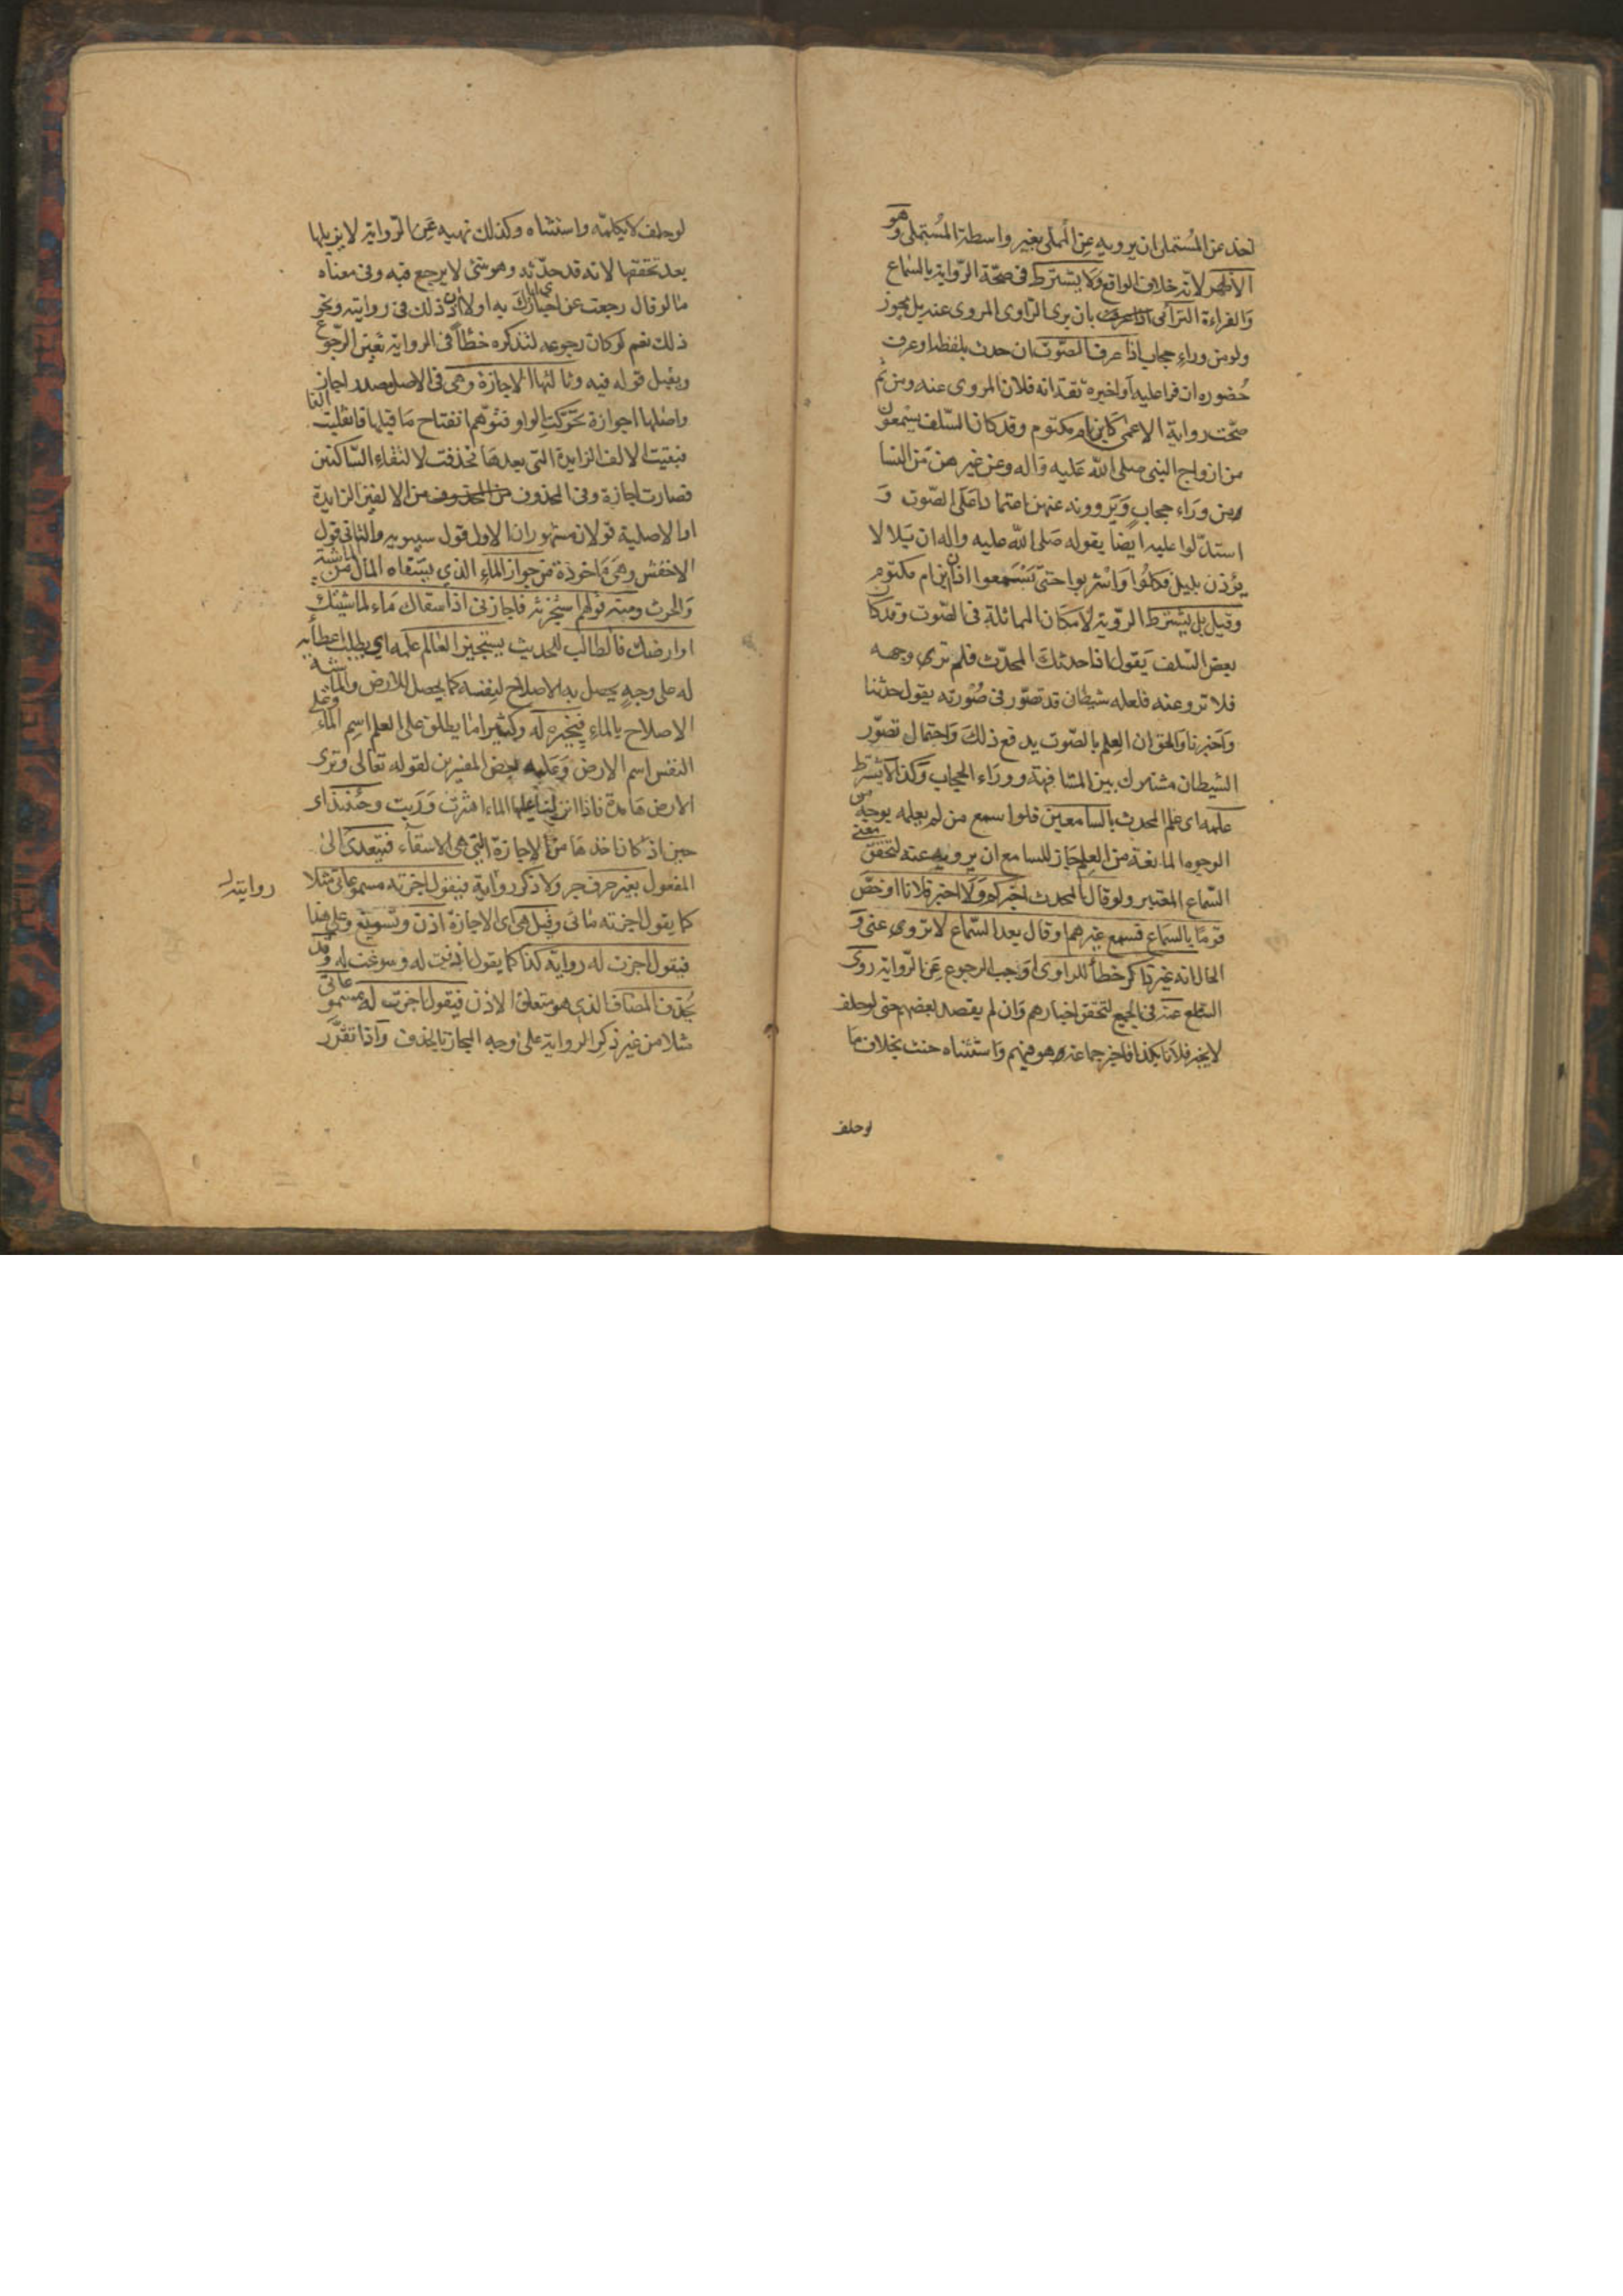 اخذ عن المستملى ان يرويه عن المملى بغير واسطة المستملى وهو
الاظهر لانه خلاف الواقع ولا يشترط فى صحة الرواية بالسماع
والقراءة الترائى بان يرى الراوى المروى عنه بل يجوز
ولو من وراء حجاب اذا عرف الصوت ان حدث بلفظه او عرف
حضوره ان قرا عليه او اخبره ثقة انه فلان المروى عنه ومن ثم
صحت رواية الاعمى كابن ام مكتوم وقد كان السلف يسمعون
من ازواج النبى صلى الله عليه واله وعن غيرهن من النسا
من وراء حجاب ويروونه عنهن اعتمادا على الصوت و
استدلوا عليه ايضا بقوله صلى الله عليه واله ان بلالا
يؤذن بليل فكلوا واشربوا حتى تسمعوا اذان ابن ام مكتوم
وقيل بل يشترط الروية لامكان المماثلة فى الصوت وقد كان
بعض السلف يقول اذا حدثك المحدث فلم ترى وجهه
فلا ترو عنه فلعله شيطان قد تصور فى صورته يقول حدثنا
واخبرنا والحق ان العلم بالصوت يدفع ذلك واحتمال تصور
الشيطان مشترك بين المشافهة ووراء الحجاب وكذا لا يشترط
علمه اى علم المحدث بالسامعين فلو اسمع من لم يعلمه بوجه من
الوجوه المانعة من العلم جاز للسامع ان يرويه عنه لتحقق معنى
السماع المعتبر ولو قال المحدث اخبركم ولا اخبر فلانا او خص
قوما بالسماع فسمع غيرهم او قال بعد السماع لا تروى عنى و
الحال انه غير ذاكر خطأ للراوى اوجب الرجوع عن الرواية روى
السامع عنه فى الجميع لتحقق اخبارهم وان لم يقصد بعضهم حتى لو حلف
لا يخبر فلانا بكذا فاخبر جماعة وهو فيهم واستثناه حنث بخلاف ما
لو حلف
لو حلف لا يكلمه واستثناه وكذلك نهيه عن الرواية لا يزيلها
بعد تحققها لانه قد حدثه وهو شئ لا يرجع فيه وفى معناه
ما لو قال رجعت عن اخبارى اياك به او لا اذن ذلك فى روايته ونحو
ذلك نعم لو كان رجوعه لتذكره خطأ فى الرواية تعين الرجوع
ويقبل قوله فيه وثالثها الاجازة وهى فى الاصل مصدر اجاز
واصلها اجوازة تحركت الواو فتوهم انفتاح ما قبلها فانقلبت الفا
فبقيت الالف الزايدة التى بعدها فحذفت لالتقاء الساكنين
فصارت اجازة وفى المحذوف من الالفين الزايدة
او الاصلية قولان مشهوران الاول قول سيبويه والثانى قول
الاخفش وهى ماخوذة من جواز الماء الذى يسقاه المال من الماشية
والحرث ومنه قولهم استجزته فاجازنى اذا سقاك ماء لماشيتك
او ارضك فالطالب للحديث يستجيز العالم علمه اى يطلب اعطائه
له على وجه يحصل به الاصلاح لنفسه كما يحصل للارض والماشية
الاصلاح بالماء فيجيزه له وكثيرا ما يطلق على العلم اسم الماء وعلى
النفس اسم الارض وعليه بعض المفسرين لقوله تعالى وترى
الارض هامدة فاذا انزلنا عليها الماء اهتزت وربت وحينئذ اى
حين اذ كان اخذها من الاجازة التى هى الاسقاء فتتعدى الى
المفعول بغير حرف جر ولا ذكر رواية فيقول اجزته مسموعاتى مثلا
كما يقول اجزته مائى وقيل هى اى الاجازة اذن وتسويغ وعلى هذا
فيقول اجزت له رواية كذا كما يقول اذنت له وسوغت له وقد
يحذف المضاف الذى هو متعلق الاذن فيقول اجزت له مسموعاتى
مثلا من غير ذكر الرواية على وجه المجاز بالحذف واذا تقرر
روايته